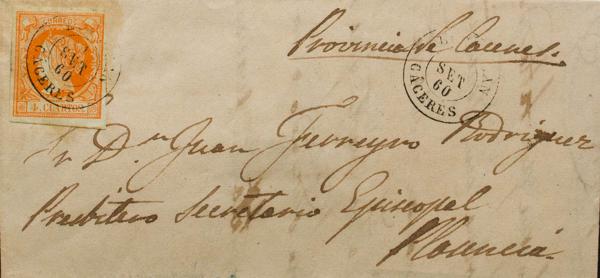 CORREOS
SET
60
CÁCERES
4 CUARTOS
Provincia de Caceres.
SET
60
CÁCERES
Sr. Dn Juan Ferreyro Rodriguez
Presbitero Secretario Episcopal
Plasencia